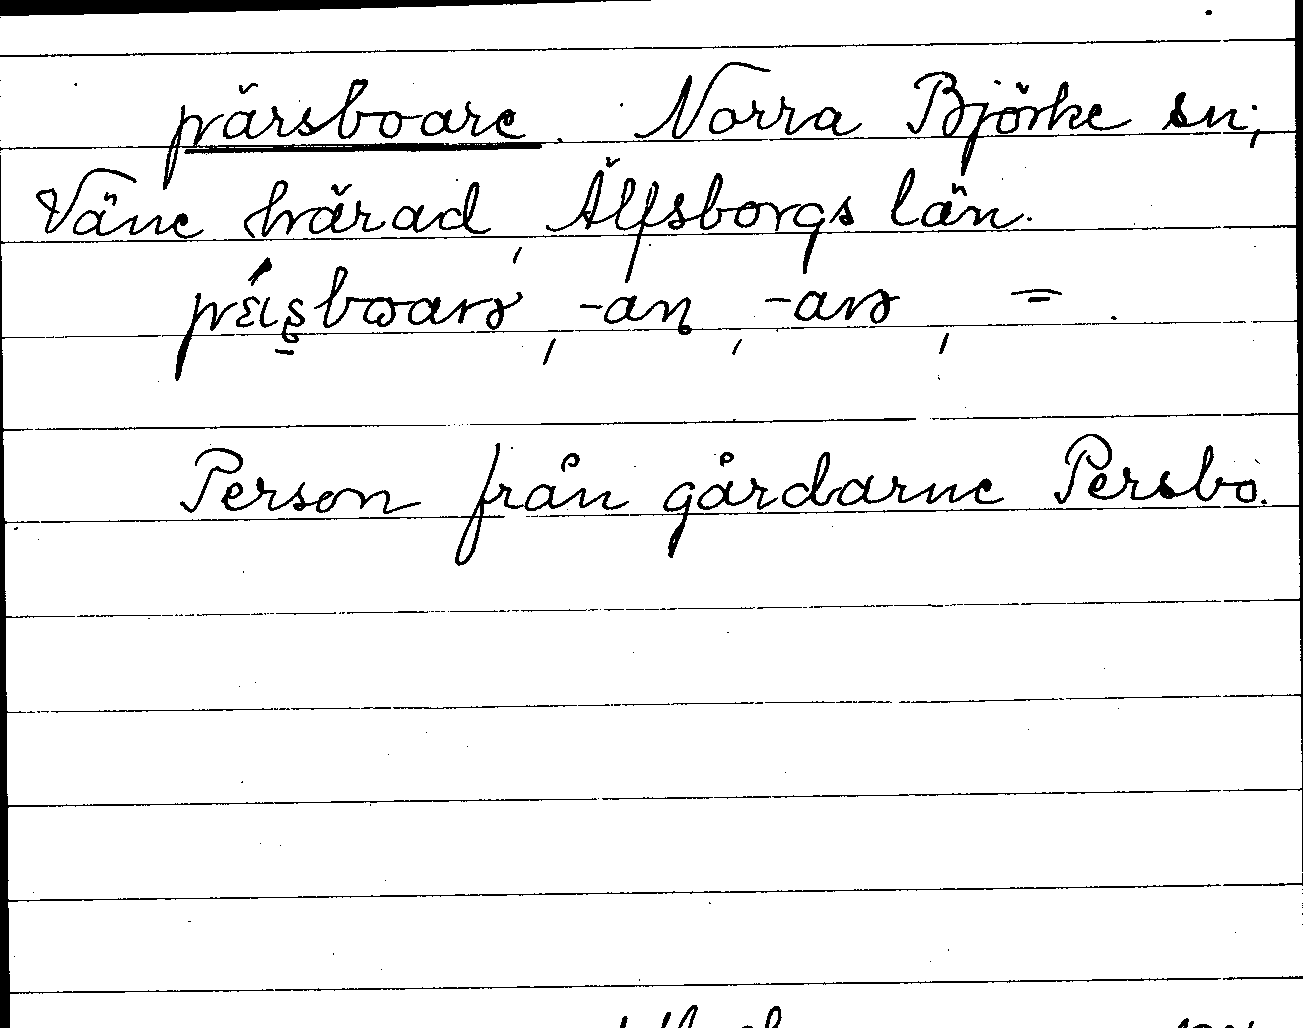 pärsboare. Norra Björke sn;
Väne härad, Älfsborgs län.
-an, -arə, =.
Person från gårdarne Persbo.